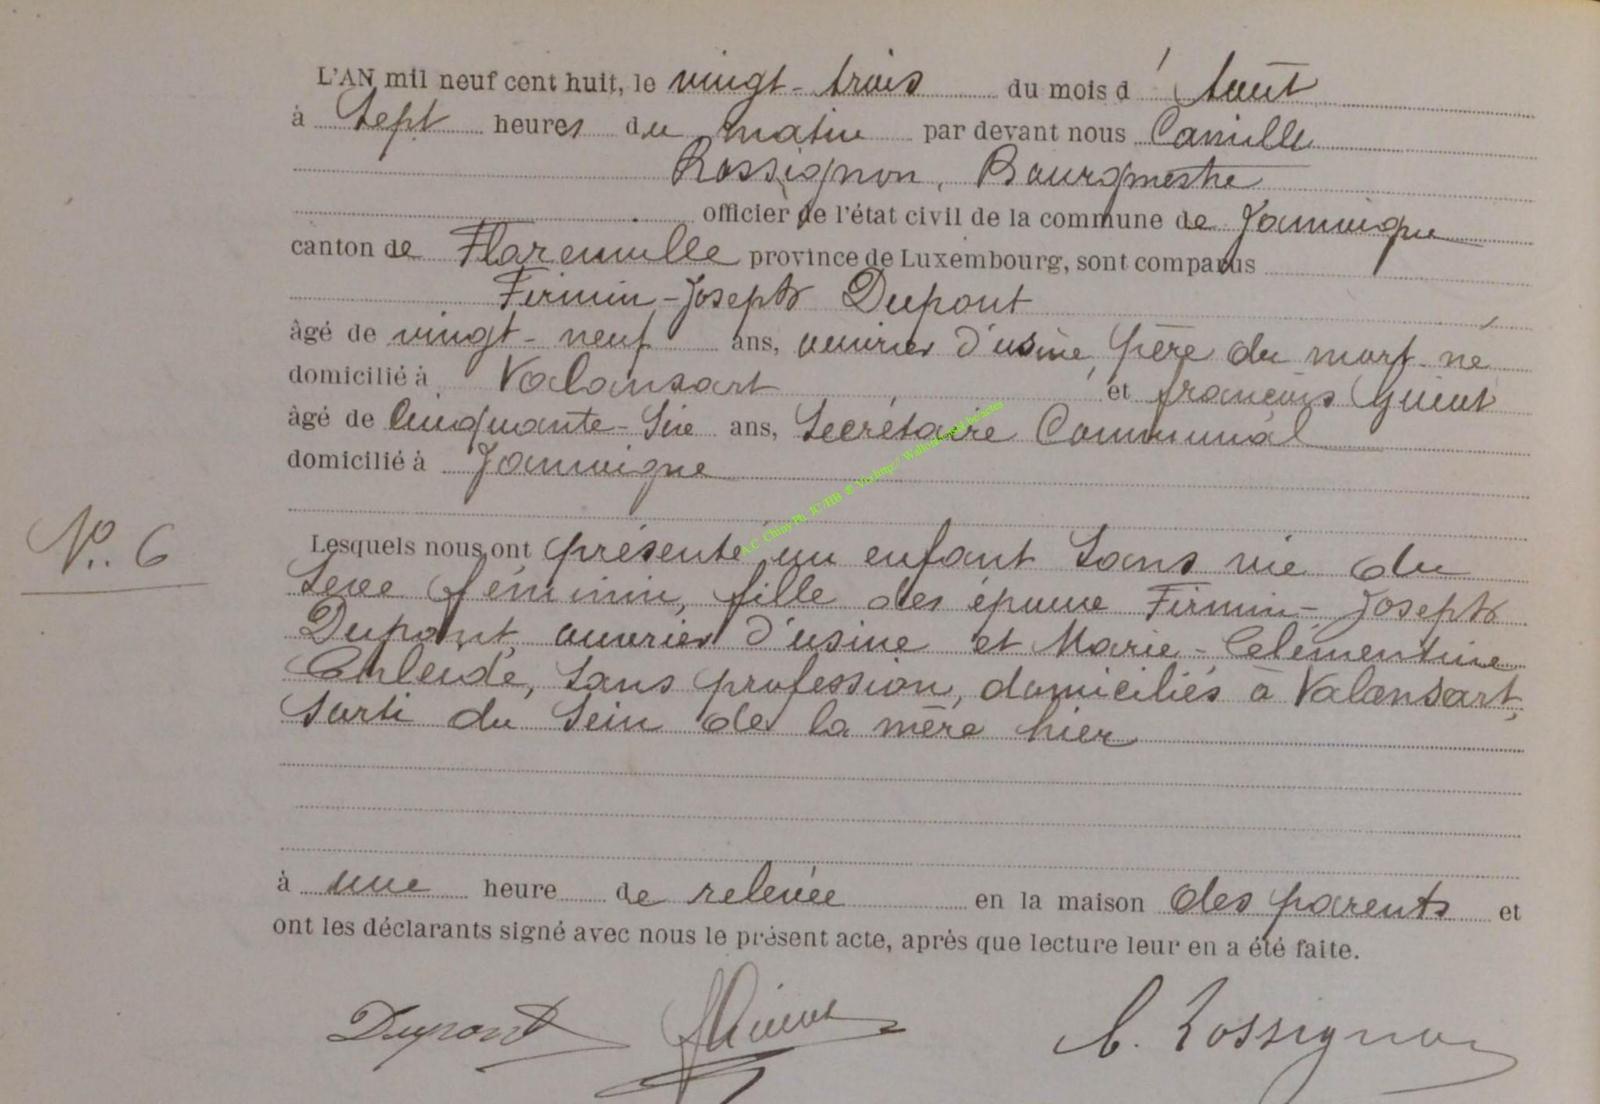 L'AN mil neuf cent huit, le vingt-trois du mois d'Août
à Sept heures du matin par devant nous Camille
Rossignon, Bourgmestre
officier de l'état civil de la commune de Jamoigne
canton de Florenville province de Luxembourg, sont comparus
Firmin-Joseph Dupont
âgé de vingt-neuf ans, ouvrier d'usine, père du mort-né
domicilié à Valansart et françois
âgé de Cinquante-Six ans, Secrétaire Communal
domicilié à Jamoigne
N°. 6
Lesquels nous ont présenté un enfant Sans vie du
Sexe féminin, fille des époux Firmin-Joseph
Dupont, ouvrier d'usine et Marie-Célémentine
sans profession, domiciliés à Valansart,
Sorti du Sein de la mère hier
à une heure de relevée en la maison des parents et
ont les déclarants signé avec nous le présent acte, après que lecture leur en a été faite.
Dupont C. Rossignon